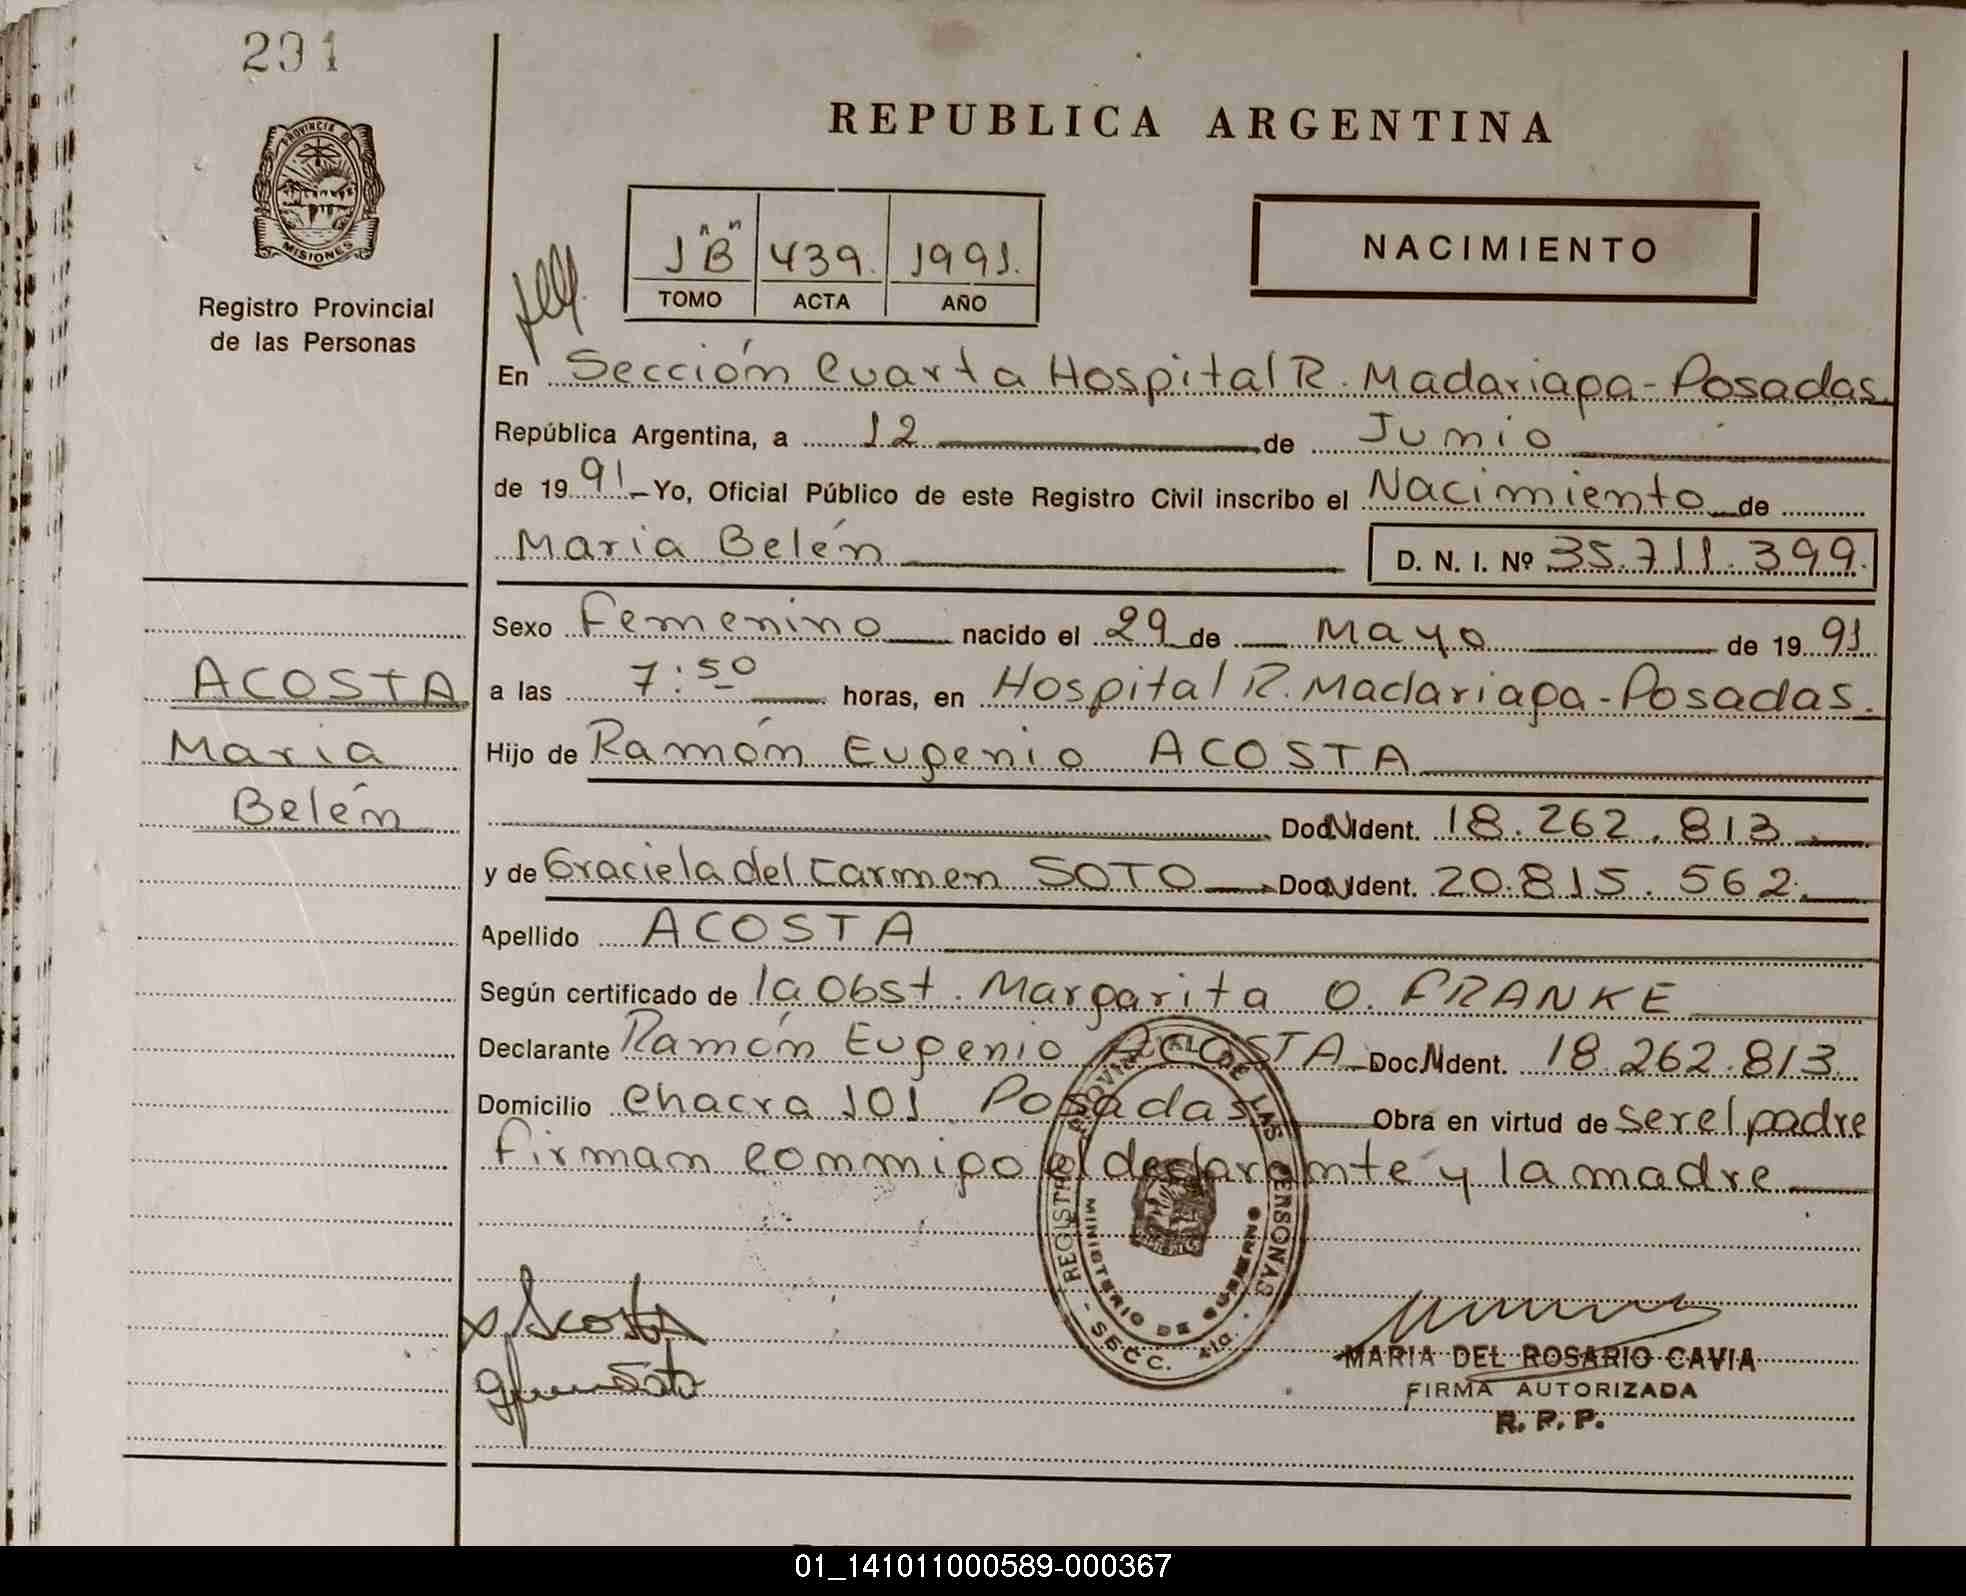 291
PROVINCIA DE
MISIONES
Registro Provincial
de las Personas
REPUBLICA ARGENTINA
1"B" 439. 1991.
TOMO ACTA AÑO
NACIMIENTO
En Sección Cuarta Hospital R. Madariaga - Posadas.
República Argentina, a 12 de Junio
de 19 91 Yo, Oficial Público de este Registro Civil inscribo el Nacimiento de
Maria Belén D. N. I. Nº 35.711.399.
Sexo Femenino nacido el 29 de Mayo de 19 91
a las 7:50 horas, en Hospital R. Madariaga - Posadas.
Hijo de Ramón Eugenio ACOSTA
Doc. N. Ident. 18.262.813
y de Graciela del Carmen SOTO Doc. N. Ident. 20.815.562
Apellido ACOSTA
Según certificado de la Obst. Margarita O. FRANKE
Declarante Ramón Eugenio ACOSTA Doc. N. Ident. 18.262.813
Domicilio Chacra 101 Posadas Obra en virtud de ser el padre
Firman conmigo el declarante y la madre
ACOSTA
Maria
Belén
REGISTRO PROVINCIAL DE LAS PERSONAS
MINISTERIO DE GOBIERNO
- SECC. 4ta. -
Acosta
Soto
MARIA DEL ROSARIO CAVIA
FIRMA AUTORIZADA
R. P. P.
01_141011000589-000367